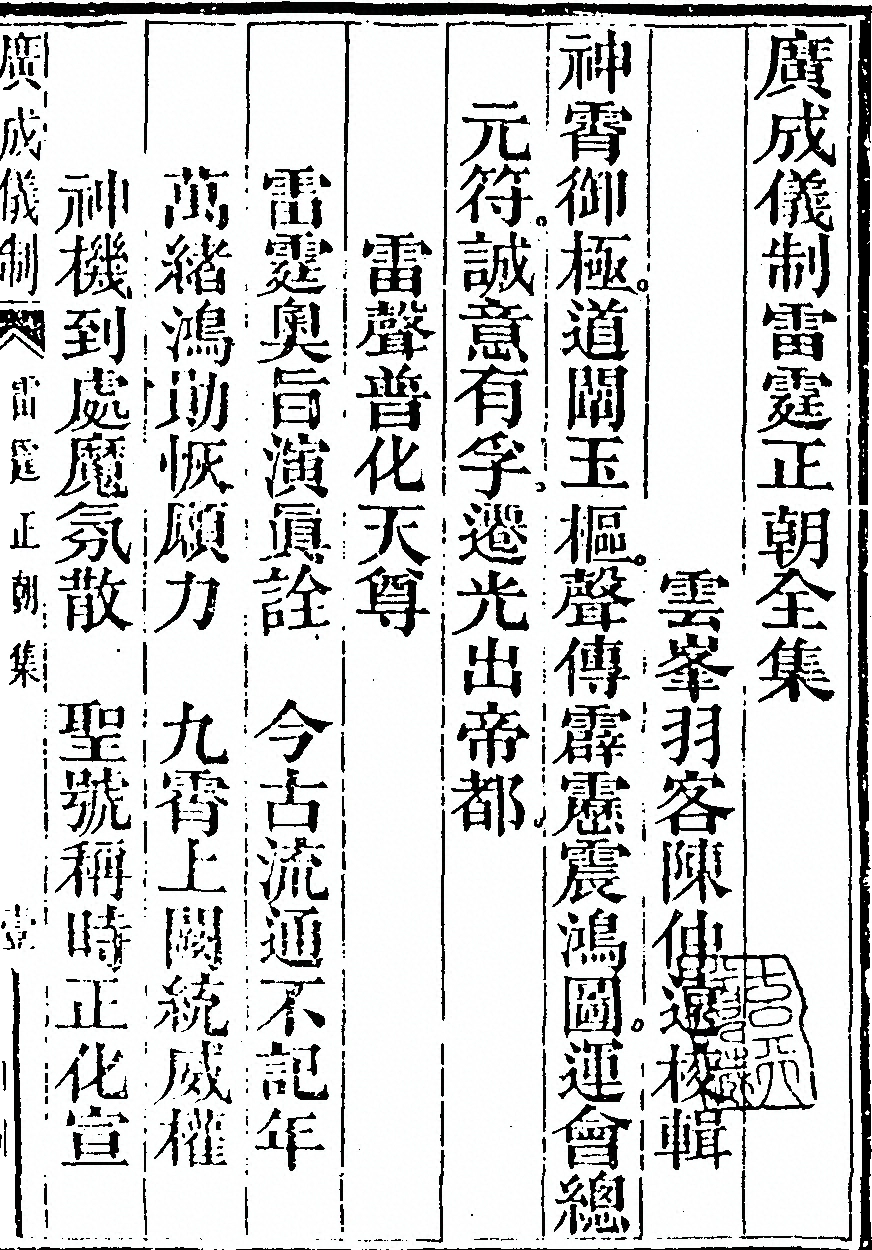 廣成儀制雷霆正朝全集
雲峯羽客陳仲遠校輯
神霄御極。道闡玉樞。聲傳霹靂震鴻圖。運會總
元符。誠意有孚。遝光出帝都。
雷聲普化天尊
雷霆奥旨演眞詮　今古流通不記年
萬緒鴻勛恢願力　九霄上闕統威權
神機到處魔氛散　聖號稱時正化宣
廣成儀制　雷霆正朝集　壹